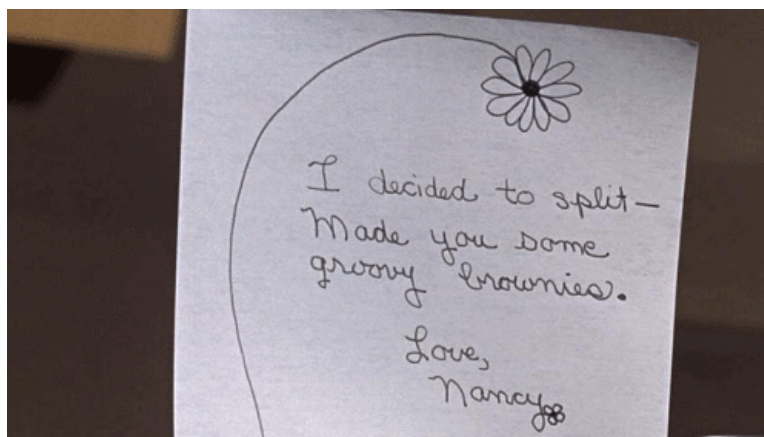 I decided to split—
Made you some
groovy brownies.
Love,
Nancy